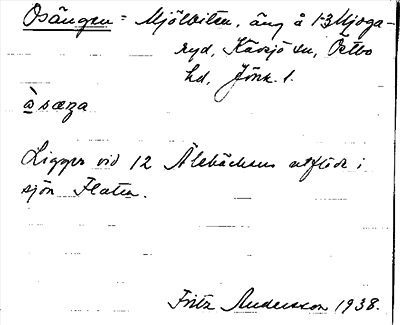 Osängen = Mjölbiten, äng å 1-3 Mjoga-
ryd, Kävsjö sn, Östbo
hd, Jönk. l.
òsæŋa
Ligger vid 12 Ålabäckens utflöde i
sjön Flaten.
Fritz Andersson 1938.